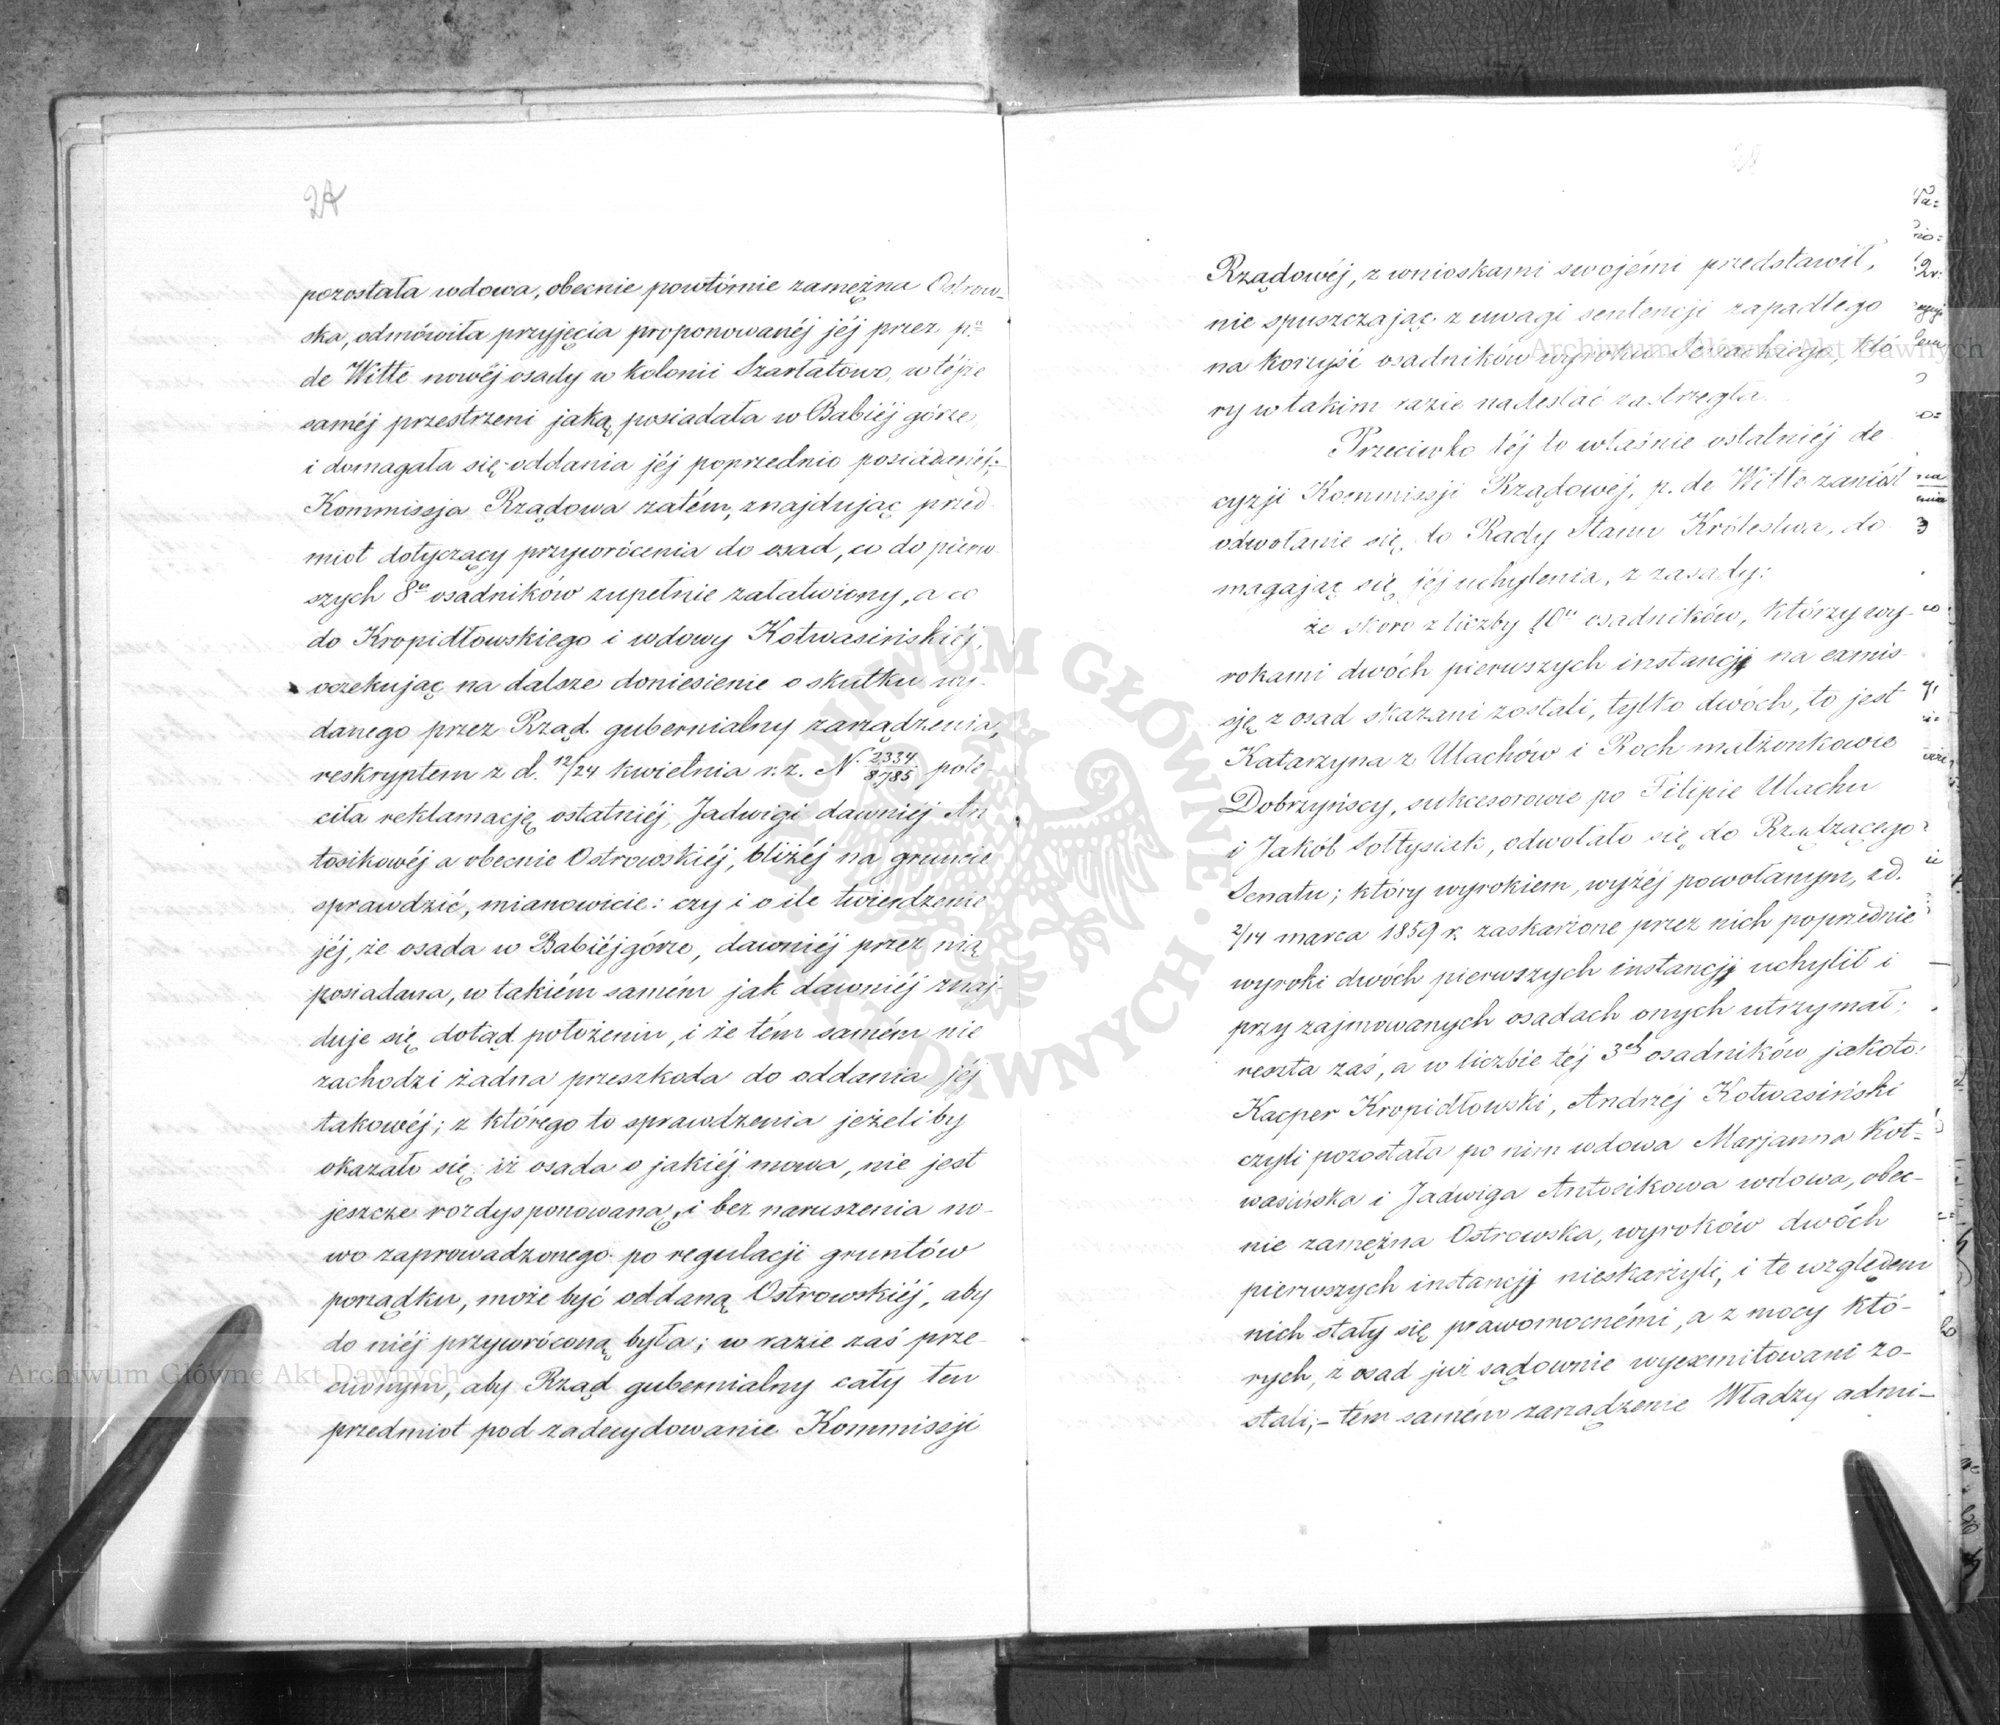 24
pozostała wdowa, obecnie powtórnie zamężna Ostrow-
ska, odmówiła przyjęcia proponowanéj jéj przez p.
de Witte nowéj osady w kolonii Szarłatowo, w téjże
saméj przestrzeni jaką posiadała w Babiéj górze,
i domagała się oddania jéj poprzednio posiadanéj;-
Kommissja Rządowa zatém, znajdując przed-
miot dotyczący przywrócenia do osad, co do pierw-
szych 8u osadników zupełnie załatwiony, a co
do Kropidłowskiego i wdowy Kotwasińskiéj,
oczekując na dalsze doniesienie o skutku wy-
danego przez Rząd gubernialny zarządzenia,
reskryptem z d. 12/24 kwietnia r.z. N. 2334/8785 pole-
ciła reklamację ostatniéj, Jadwigi dawniéj An-
tosikowéj a obecnie Ostrowskiéj, bliżéj na gruncie
sprawdzić, mianowicie: czy i o ile twierdzenie
jéj, że osada w Babiéjgórze, dawniéj przez nią
posiadana, w takiém samém jak dawniéj znaj-
duje się dotąd położeniu, i że tém samém nie
zachodzi żadna przeszkoda do oddania jéj
takowéj; z którego to sprawdzenia jeżeliby
okazało się iż osada o jakiéj mowa, nie jest
jeszcze rozdysponowaną, i bez naruszenia no-
wo zaprowadzonego po regulacji gruntów
porządku, może być oddaną Ostrowskiéj, aby
do niéj przywróconą była; w razie zaś prze-
ciwnym, aby Rząd gubernialny cały ten
przedmiot pod zadecydowanie Kommissji
Rządowéj, z wnioskami swojémi przedstawił,
nie spuszczając z uwagi sentencji zapadłego
na korzyść osadników wyroku Senackiego, któ-
ry w takim razie nadesłać zastrzegła.
Przeciwko téj to właśnie ostatniéj de-
cyzji Kommissji Rządowéj, p. de Witte zaniósł
odwołanie się do Rady Stanu Królestwa, do-
magając się jéj uchylenia, z zasady:
że skoro z liczby 10u osadników, którzy wy-
rokami dwóch pierwszych instancji na exmis-
sję z osad skazani zostali, tylko dwóch, to jest
Katarzyna z Ulachów i Roch małżonkowie
Dobrzyńscy, sukcesorowie po Filipie Ulachu
i Jakób Sołtysiak, odwołało się do Rządzącego
Senatu; który wyrokiem, wyżéj powołanym, z d.
2/14 marca 1859 r. zaskarżone przez nich poprzednie
wyroki dwóch pierwszych instancji uchylił i
przy zajmowanych osadach onych utrzymał;
reszta zaś, a w liczbie téj 3ch osadników jakoto:
Kacper Kropidłowski, Andrzéj Kotwasiński
czyli pozostała po nim wdowa Marjanna Kot-
wasińska i Jadwiga Antosikowa wdowa, obec-
nie zamężna Ostrowska, wyroków dwóch
pierwszych instancji nieskarżyli, i te względem
nich stały się prawomocnémi, a z mocy któ-
rych, z osad już sądownie wyexmitowani zo-
stali;- tém samém zarządzenie Władzy admi-
Archiwum Główne Akt Dawnych
Archiwum Główne Akt Dawnych
ARCHIWUM GŁÓWNE AKT DAWNYCH